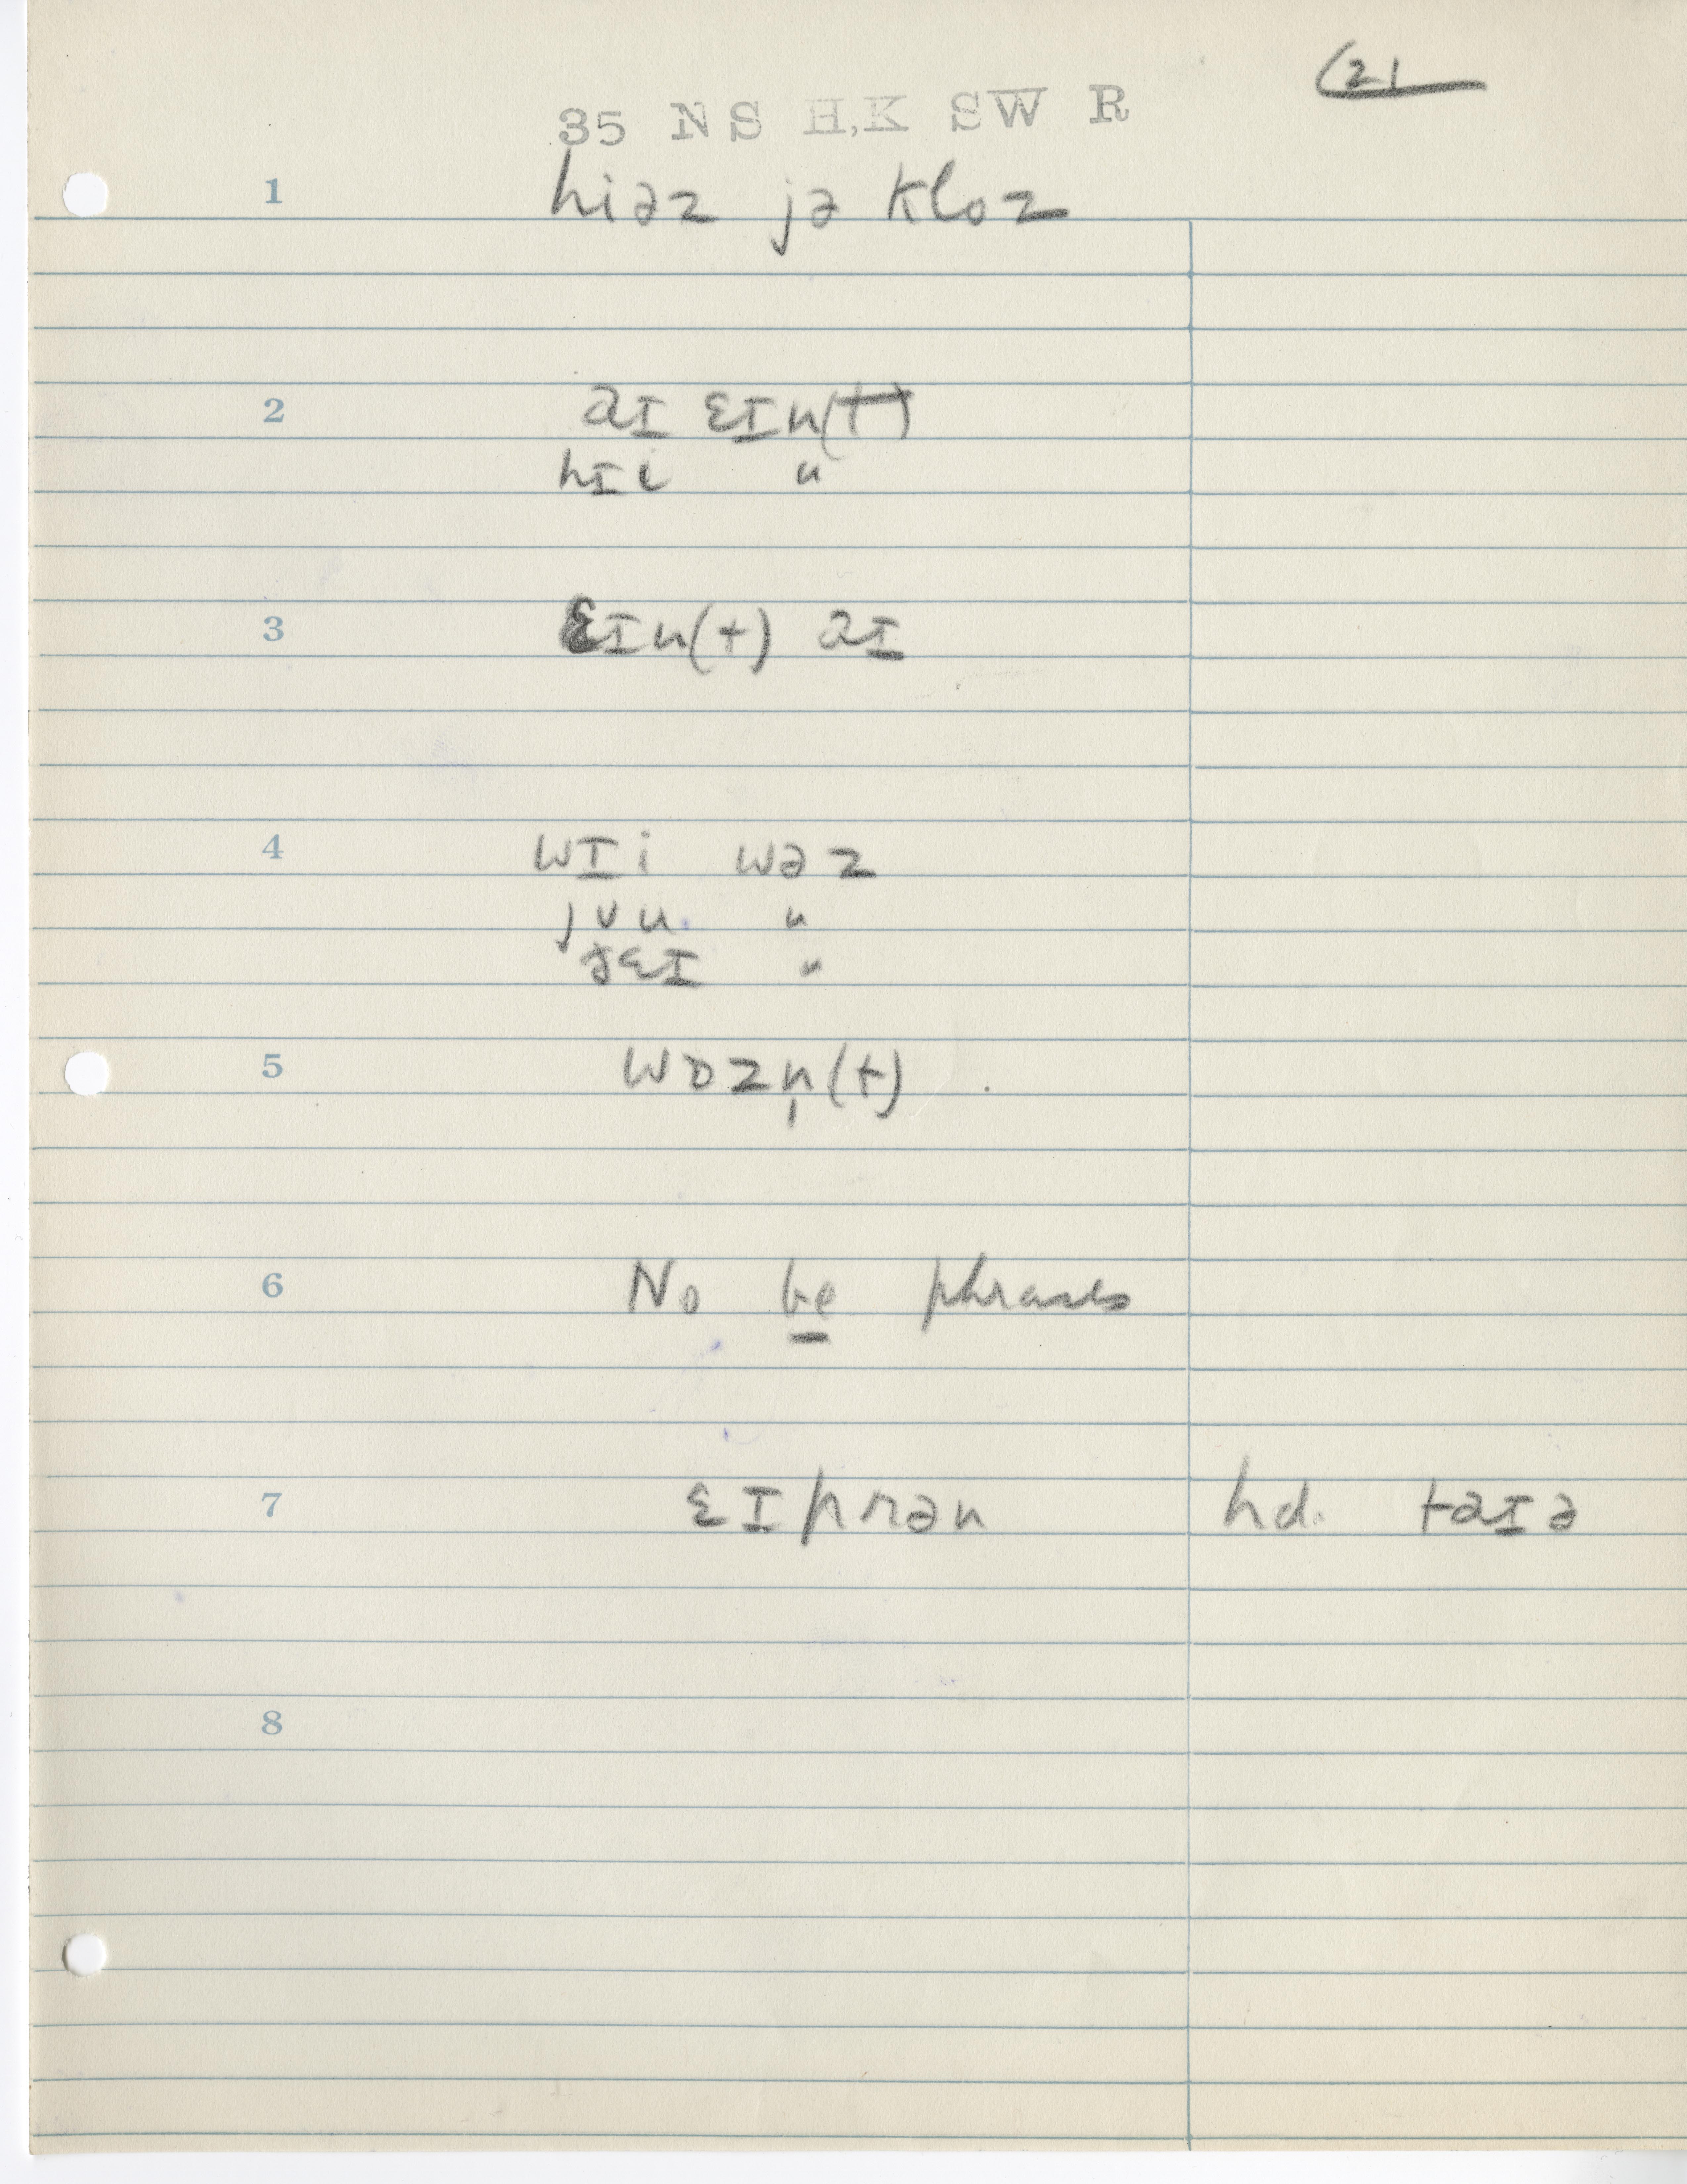 (21
35 NS H,K SW R
1 hiəz jə kloz
2 aɪ ɛɪn(t)
hɪi "
3 ɛɪn(t) aɪ
4 wɪi wəz
jʊu "
ðɛɪ "
5 wɒzn̩(t)
6 No be phrases
7 ɛɪprən hd. taɪə
8